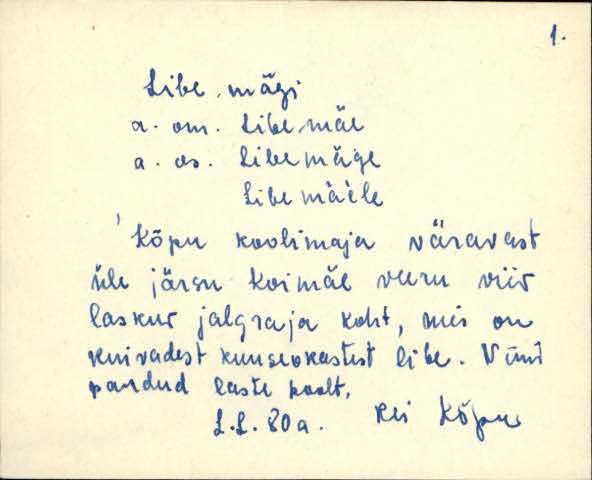 1.
Libe mägi
a. om. Libe mäe
a. os. Libe mäge
Libe mäele
Kõpu koolimaja väravast
üle järsu Koimäe veeru viiv
laskuv jalgraja koht, mis on
kuivadest kuuseokastest libe. Nimi
pandud laste poolt.
L.L. 80 a. Kõpu